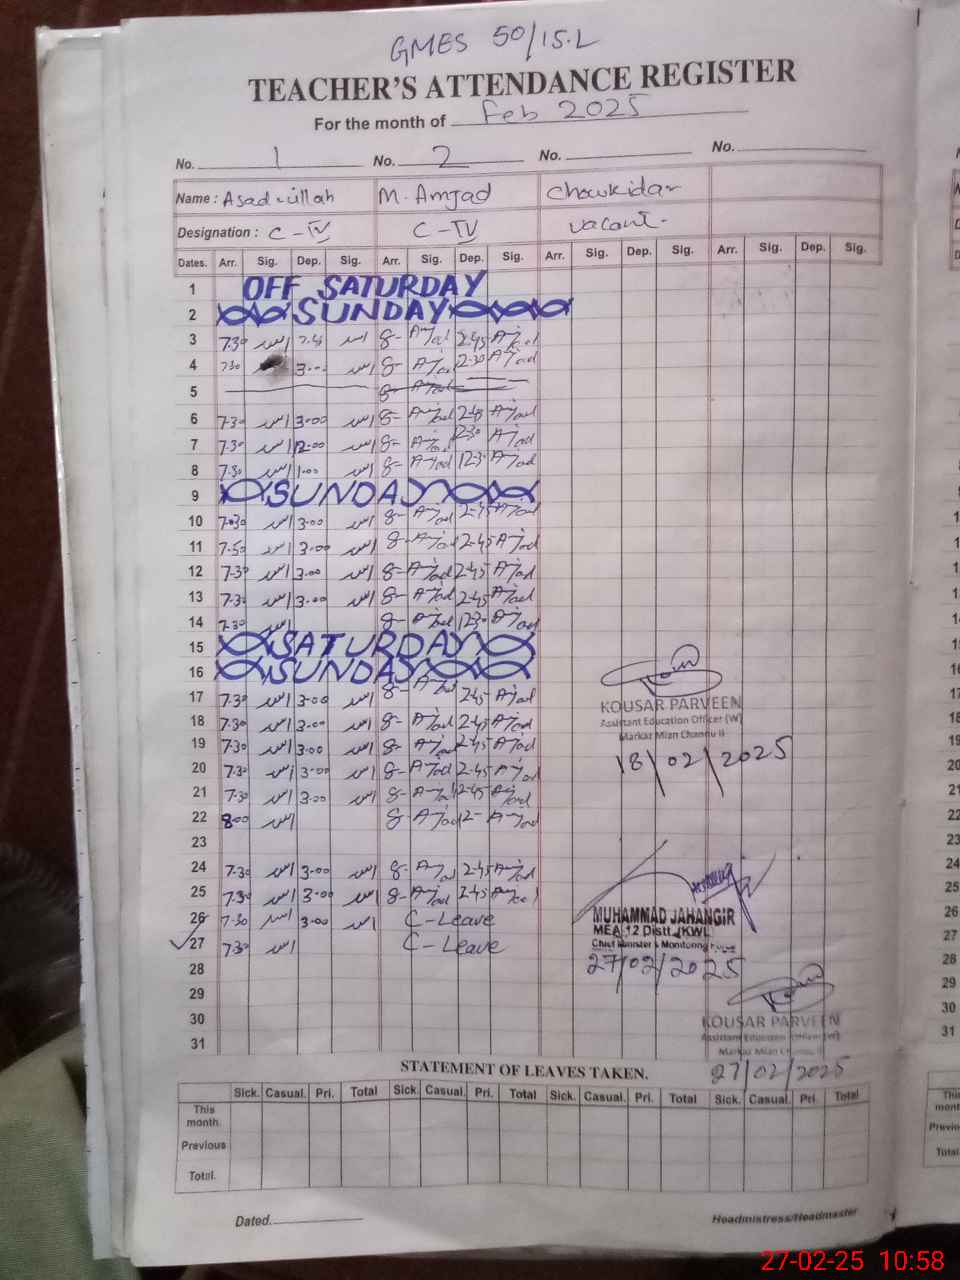 GMES 50/15.L
TEACHER'S ATTENDANCE REGISTER
For the month of Feb 2025
No. 1 No. 2 No. No.
Name : Asad-ullah M. Amjad Chowkidar
Designation : C-IV C-IV vacant-
Dates. Arr. Sig. Dep. Sig. Arr. Sig. Dep. Sig. Arr. Sig. Dep. Sig. Arr. Sig. Dep. Sig.
1 OFF SATURDAY
2 SUNDAY
3 7.30 8- Amjad 2.45 Amjad
4 7.30 3.00 8- Amjad 2.30 Amjad
5 8- Amjad
6 7.30 3.00 8- Amjad 2.45 Amjad
7 7.30 12.00 8- Amjad 12.30 Amjad
8 7.30 1.00 8- Amjad 12.30 Amjad
9 SUNDAY
10 7.30 3.00 8- Amjad 2.45 Amjad
11 7.50 3.00 8- Amjad 2.45 Amjad
12 7.30 3.00 8- Amjad 2.45 Amjad
13 7.30 3.00 8- Amjad 2.45 Amjad
14 7.30 8- Amjad 12.30 Amjad
15 SATURDAY
16 SUNDAY
17 7.30 3.00 8- Amjad 2.45 Amjad
18 7.30 3.00 8- Amjad 2.45 Amjad
19 7.30 3.00 8- Amjad 2.45 Amjad
20 7.30 3.00 8- Amjad 2.45 Amjad
21 7.30 3.00 8- Amjad 2.45 Amjad
22 8.00 8 Amjad 12- Amjad
23
24 7.30 3.00 8- Amjad 2.45 Amjad
25 7.30 3.00 8- Amjad 2.45 Amjad
26 7.30 3.00 C-Leave
27 7.30 C-Leave
28
29
30
31
KOUSAR PARVEEN
Assistant Education Officer (W)
Markaz Mian Channu II
18/02/2025
MUHAMMAD JAHANGIR
MEA 12 Distt. (KWL)
Chief Minister's Monitoring Force
27/02/2025
KOUSAR PARVEEN
Assistant Education Officer (W)
Markaz Mian Channu II
27/02/2025
STATEMENT OF LEAVES TAKEN.
Sick. Casual. Pri. Total Sick. Casual. Pri. Total Sick. Casual. Pri. Total Sick. Casual. Pri. Total
This month.
Previous
Total.
Dated.
Headmistress/Headmaster
27-02-25 10:58